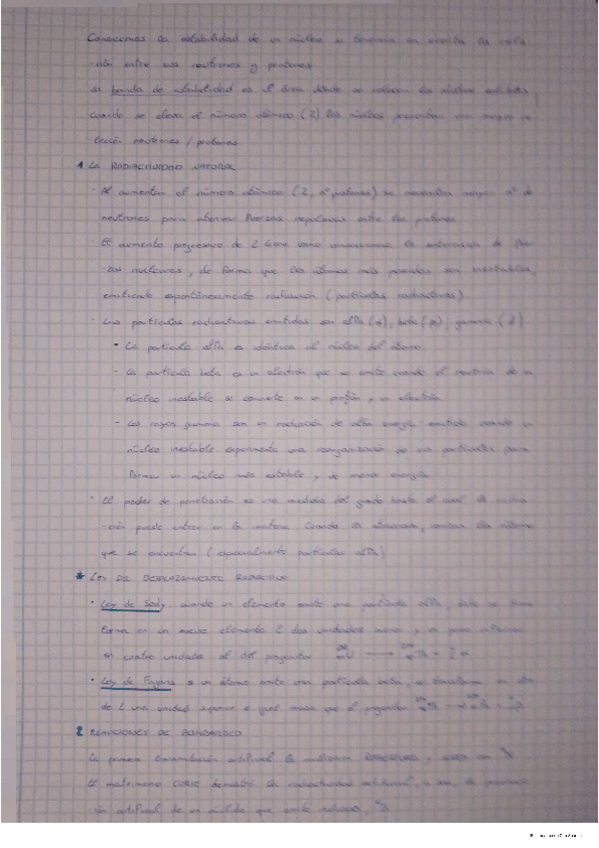 Conocemos la estabilidad de un núcleo si tenemos en cuenta la rela-
-ción entre sus neutrones y protones.
La banda de estabilidad es el área donde se colocan los núcleos estables,
cuando se eleva el número atómico (Z) los núcleos presentan una mayor re-
-lación neutrones / protones.
1 LA RADIACTIVIDAD NATURAL
· Al aumentar el número atómico (Z, nº protones) se necesitan mayor nº de
neutrones para ahorrar fuerzas repulsivas entre los protones.
El aumento progresivo de Z tiene como consecuencia la saturación de fuer-
-zas nucleares, de forma que los átomos más pesados son inestables,
emitiendo espontáneamente radiación (partículas radiactivas)
· Las partículas radiactivas emitidas son alfa (α), beta (β), gamma (γ)
- La partícula alfa es idéntica al núcleo del átomo
- La partícula beta es un electrón que se emite cuando el neutrón de un
núcleo inestable se convierte en un protón y un electrón.
- Los rayos gamma son un radiación de alta energía emitida cuando un
núcleo inestable experimenta una reorganización de sus partículas para
formar un núcleo más estable, de menor energía.
· El poder de penetración es una medida del grado hasta el cual la radia-
-ción puede entrar en la materia. Cuando la atraviesan, ionizan los átomos
que se encuentran (especialmente partículas alfa)
* LEY DE DESPLAZAMIENTO RADIACTIVO
· Ley de Soddy cuando un elemento emite una partícula alfa, éste se trans-
forma en un nuevo elemento Z dos unidades menor y un peso inferior
en cuatro unidades al del progenitor
· Ley de Fajans si un átomo emite una partícula beta, se transforma en otro
de Z una unidad superior e igual masa que el progenitor
2 REACCIONES DE BOMBARDEO
La primera transmutación artificial la realizaron
El matrimonio CURIE demostró la radiactividad artificial, o sea, la produc-
ción artificial de un núclido que emite radiación